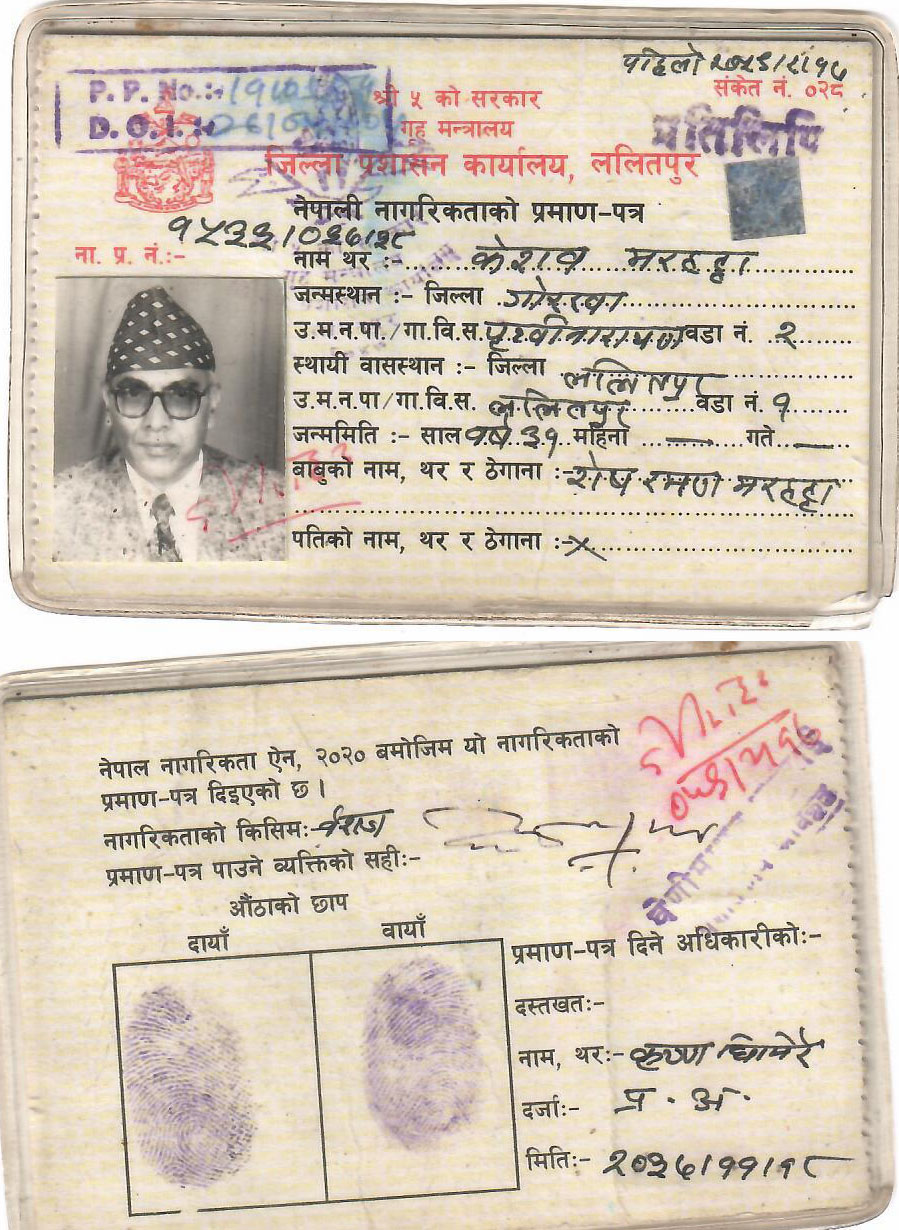 पहिलो
P. P. No.:-
श्री ५ को सरकार
संकेत नं. ०२८
D. O. I. :-
गृह मन्त्रालय
प्रतिलिपि
जिल्ला प्रशासन कार्यालय, ललितपुर
नेपाली नागरिकताको प्रमाण-पत्र
ना. प्र. नं.:-
नाम थर :- केशव मरहट्टा
जन्मस्थान :- जिल्ला गोरखा
उ.म.न.पा./गा.वि.स. पृथ्वीनारायण वडा नं. २
स्थायी वासस्थान :- जिल्ला ललितपुर
उ.म.न.पा/गा.वि.स. ललितपुर वडा नं. १
जन्ममिति :- साल वर्ष ३१ महिना — गते —
बाबुको नाम, थर र ठेगाना :- शेष रमण मरहट्टा
पतिको नाम, थर र ठेगाना :- x
नेपाल नागरिकता ऐन, २०२० बमोजिम यो नागरिकताको
प्रमाण-पत्र दिइएको छ ।
नागरिकताको किसिम:- वंशज
प्रमाण-पत्र पाउने व्यक्तिको सही:-
औंठाको छाप
दायाँ बायाँ
प्रमाण-पत्र दिने अधिकारीको:-
दस्तखत:-
नाम, थर:- कृष्ण घिमिरे
दर्जा:- प्र. अ.
मिति:- २०३६।११।१८